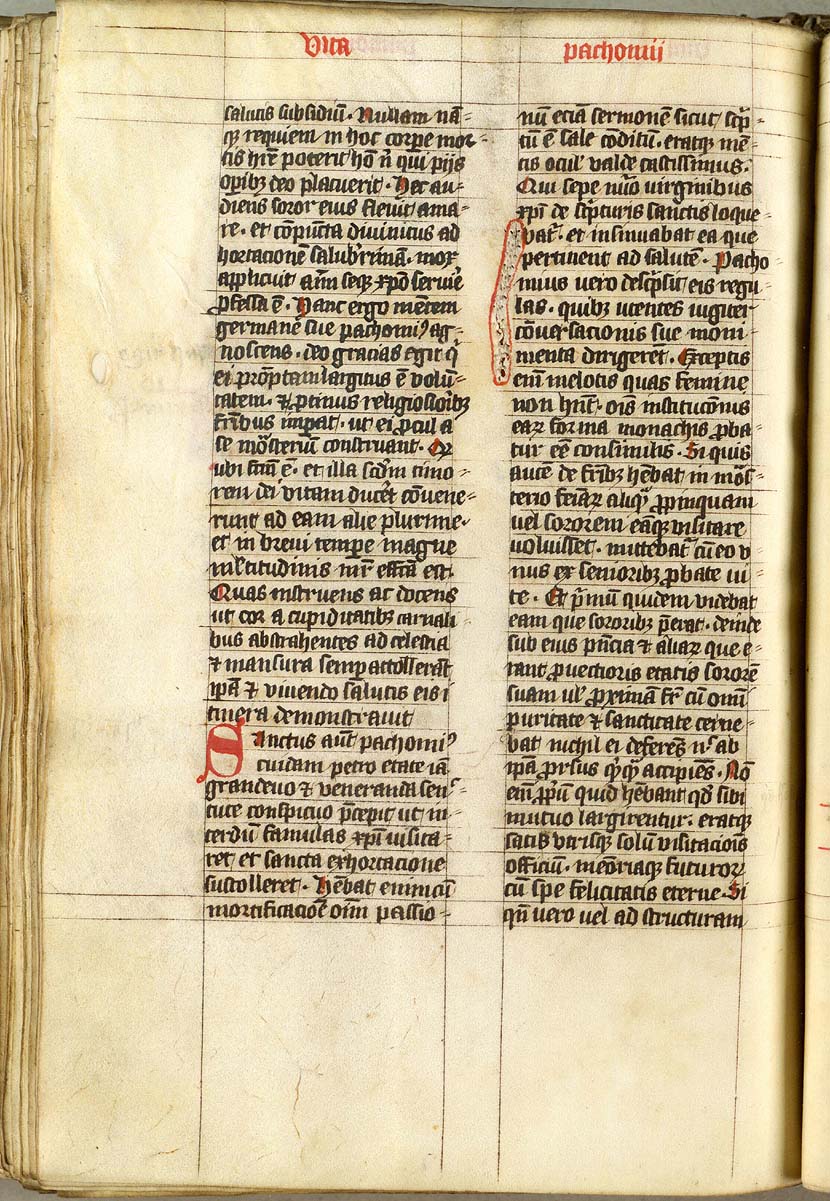 Vita pachomij
salutis subsidiū. Nullam nā-
q̨ requiem in hoc corꝑe mor-
tis hr̄e poterit hō n̄ qui pijs
oꝑibꝫ deo placuerit. Hec au-
diens soror eius fleuit ama-
re. et cōpūcta diuinitus ad
hortacionē salubr̄rimā. mox
applicuit aīm seqꝫ xp̄o seruir̄e
ꝓfessa ē. Hanc ergo mētem
germane sue pachomiꝰ ag-
noscens. deo gracias egit q̄
ei prōptam largitus ē volū-
tatem. ⁊ ꝓtinus religiosioribꝫ
fr̄ibus imꝑat. ut ei ꝓcul a
se mōsteriū construant. Et
ubi fc̄m ē. et illa scd̄m timo-
rem dei vitam ducēt cōuene-
runt ad eam alie plurime.
et in breui tempore magne
ml̄titudinis mr̄ effc̄a est.
Quas instruens ac docens
ut cor a cupiditatibꝫ carnali-
bus abstrahentes ad celestia
⁊ mansura semꝑ attollerāt
ip̄a ⁊ viuendo salutis eis i
tinera demonstrauit
Sanctus aūt pachomiꝰ
cuidam petro etate iā
grandeuo ⁊ veneranda senc̄-
tute conspicuo p̄cepit ut in-
terdiu famulas xp̄i uisita-
ret et sancta exhortacione
sustolleret. Hēbat enim cū
mortificacioē oīm passio-
nū eciā sermonē sicut sc̄ptū
tū ē sale cōditū. eratqꝫ mē-
tis oculꝭ valde castissimus.
Qui sepe nūo uirginibus
xp̄i de sc̄pturis sanctis loque-
bat̄. et insinuabat ea que
pertinent ad salutē. Pacho
mius vero desc̄psit eis regu
las. quibꝫ utentes iugiter
cōuersacionis sue moni-
menta dirigerēt. Exceptis
enī melotis quas femine
non hn̄t. oīs institucōnis
eaꝝ forma monachis ꝓba
tur eē consimilis. Si quis
autē de fr̄ibꝫ hēbat in mōs-
terio feīaꝝ aliq̄ ꝓpinquam
uel sororem eāqꝫ visitare
uoluisset. mittebat̄ cū eo v-
nus ex senioribꝫ ꝓbate ui-
te. Et p̄mū quidem videbat
eam que sororibꝫ p̄erat. deinde
sub eius pn̄cia ⁊ aliaꝝ que e-
rant ꝓuectioris etatis sororē
suam ul̄ ꝓximā fr̄ cū omī
puritate ⁊ sanctitate cerne-
bat nichil ei deferēs nꝭ ab
ip̄a ꝓrsus q̄q̄ accipiēs. Nō
em̄ ꝓp̄ū quid hēbant qd̄ sibi
mutuo largirentur. eratqꝫ
satis vtrisqꝫ solū visitacōis
officiū. memoriaqꝫ futuroꝝ
cū spe felicitatis eterne. Si
qn̄ vero uel ad structuram